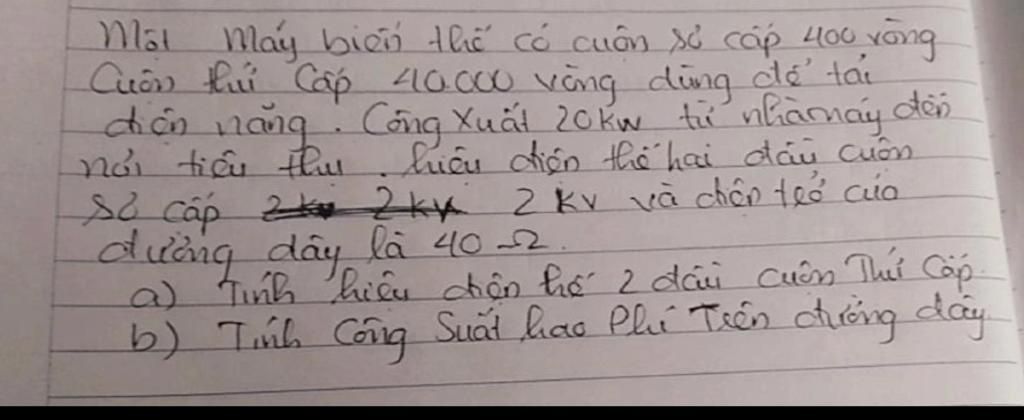 Một máy biến thế có cuộn sơ cấp 400 vòng
Cuộn thứ Cấp 40.000 vòng dùng để tải
điện năng. Công Xuất 20kw từ nhà máy đến
nơi tiêu thụ. hiệu điện thế hai đầu cuộn
sơ cấp 2 kv và điện trở của
đường dây là 40 Ω.
a) Tính hiệu điện thế 2 đầu cuộn Thứ Cấp.
b) Tính Công Suất hao Phí Trên đường dây